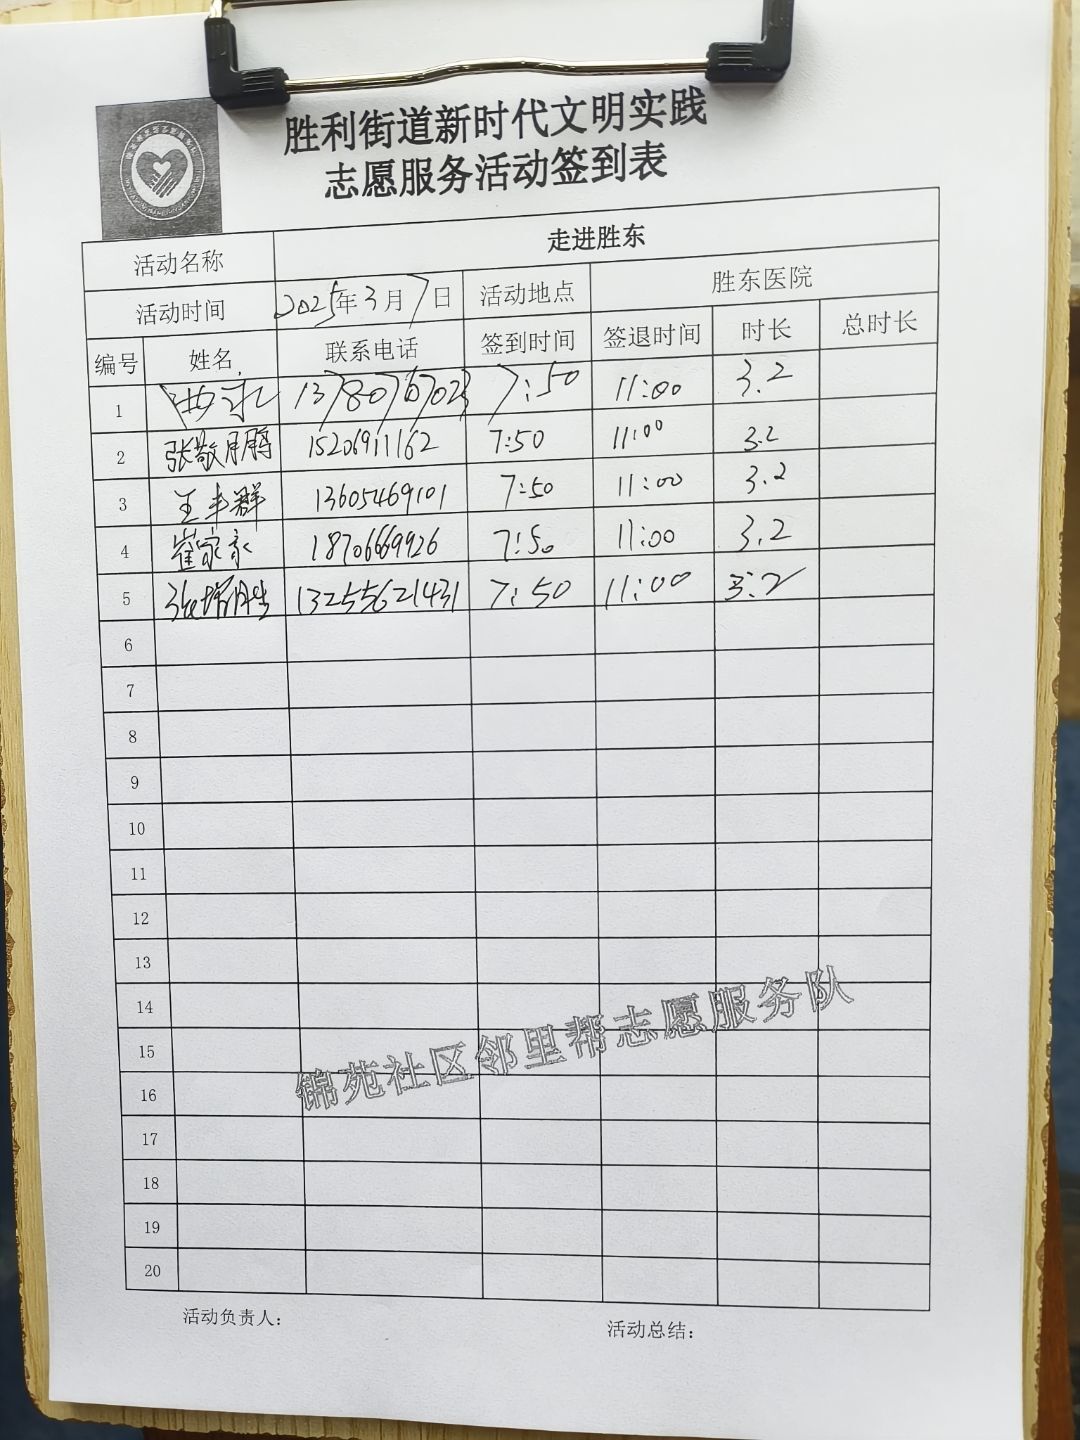 胜利街道新时代文明实践
志愿服务活动签到表
活动名称 走进胜东
活动时间 2025年3月7日 活动地点 胜东医院
编号 姓名 联系电话 签到时间 签退时间 时长 总时长
1 7:50 11:00 3.2
2 张敬鹏 15206911162 7:50 11:00 3.2
3 王丰群 13605469101 7:50 11:00 3.2
4 崔家永 18706669926 7:50 11:00 3.2
5 13255621431 7:50 11:00 3.2
6
7
8
9
10
11
12
13
14
15
16
17
18
19
20
锦苑社区邻里帮志愿服务队
活动负责人: 活动总结: